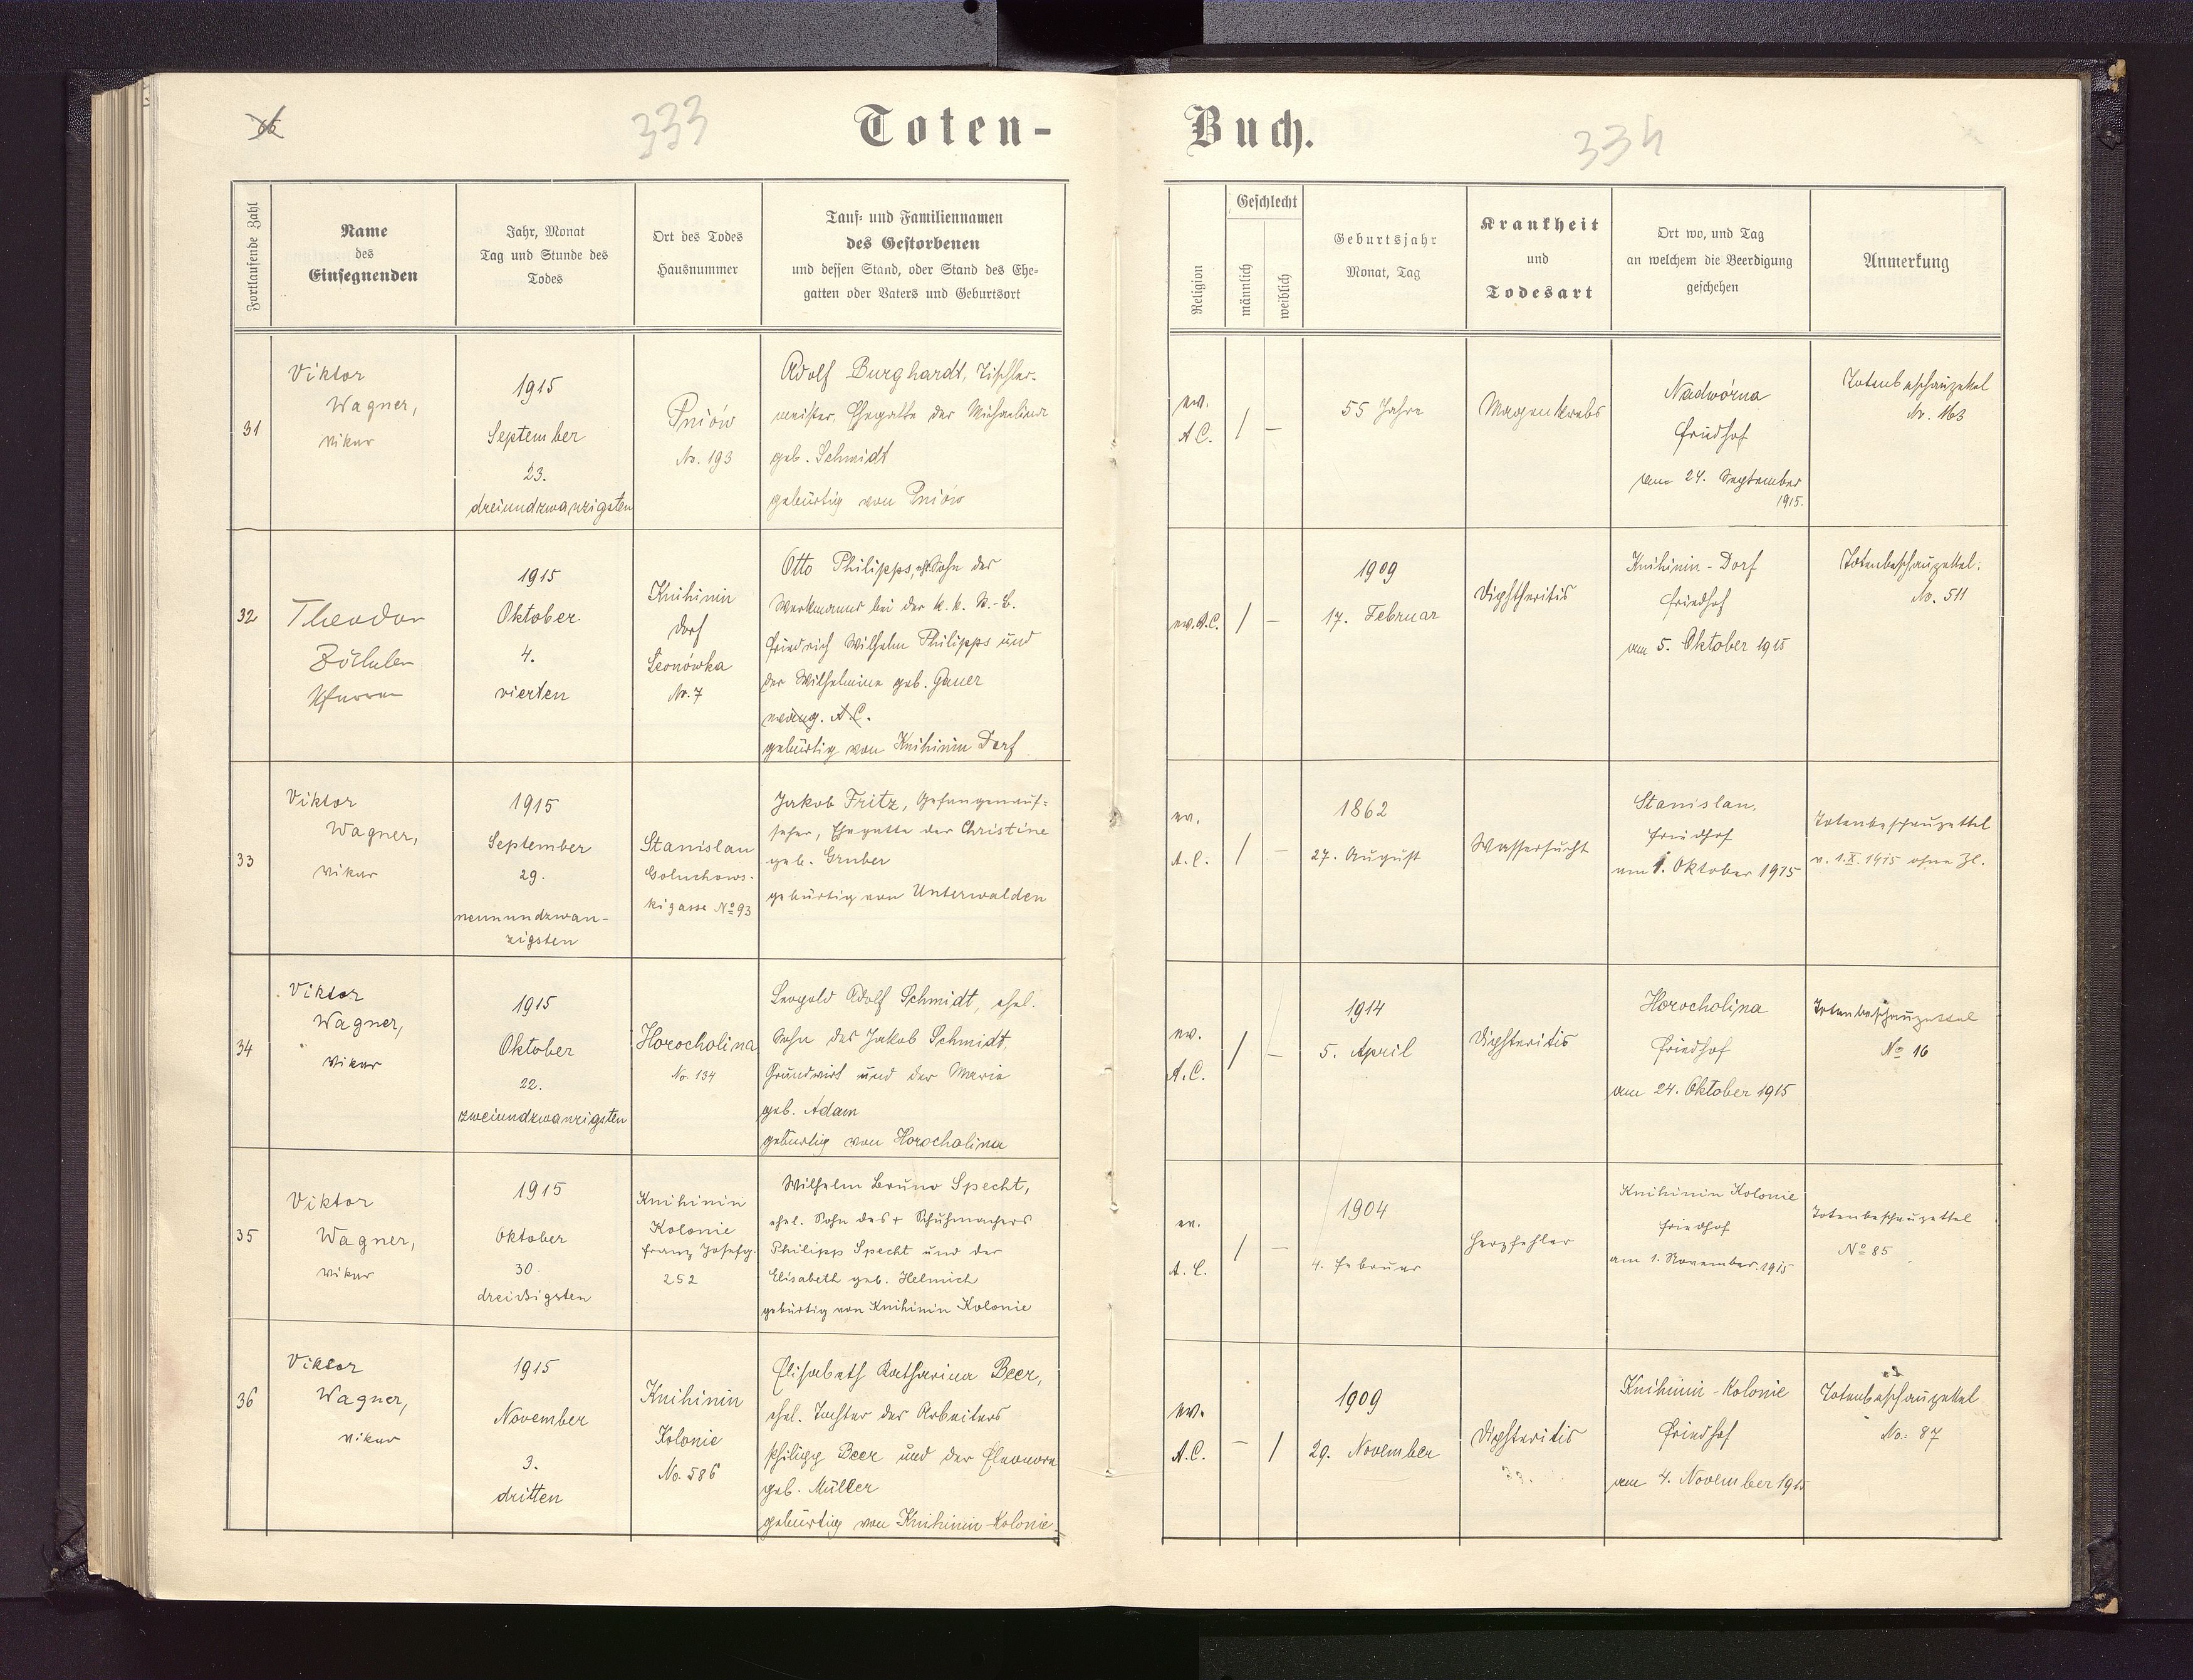 333
Toten-
Buch.
334
Fortlaufende Zahl
Name
des
Einsegnenden
Jahr, Monat
Tag und Stunde des
Todes
Ort des Todes
Hausnummer
Tauf- und Familiennamen
des Gestorbenen
und dessen Stand, oder Stand des Ehe-
gatten oder Vaters und Geburtsort
Religion
Geschlecht
männlich
weiblich
Geburtsjahr
Monat, Tag
Krankheit
und
Todesart
Ort wo, und Tag
an welchem die Beerdigung
geschehen
Anmerkung
31
Viktor
Wagner,
Vikar
1915
September
23.
dreiundzwanzigsten
Pniów
No. 193
Adolf Burghardt, Tischler-
meister, Ehegatte der Michaelina
geb. Schmidt
gebürtig von Pniów
ev.
A C.
/
—
55 Jahre
Magenkrebs
Nadwórna
Friedhof
am 24. September
1915.
Totenbeschauzettel
No. 163
32
Theodor
Zöckler
Pfarrer
1915
Oktober
4.
vierten
Knihinin
Dorf
Leonówka
No. 7
Otto Philipps, ehl. Sohn des
Werkmanns bei der k. k. St.-B.
Friedrich Wilhelm Philipps und
der Wilhelmine geb. Gauer
evang. A.C.
gebürtig von Knihinin Dorf
ev. A.C.
/
—
1909
17. Februar
Diphtheritis
Knihinin - Dorf
Friedhof
am 5. Oktober 1915
Totenbeschauzettel.
No. 511
33
Viktor
Wagner,
Vikar
1915
September
29.
neunundzwan-
zigsten
Stanislau
Goluchows-
kigasse No 93
Jakob Fritz, Gefangenauf-
seher, Ehegatte der Christine
geb. Gruber
gebürtig von Unterwalden
ev.
A.C.
/
—
1862
27. August
Wassersucht
Stanislau,
Friedhof
am 1. Oktober 1915
Totenbeschauzettel
v. 1.X.1915 ohne Zl.
34
Viktor
Wagner,
Vikar
1915
Oktober
22.
zweiundzwanzigsten
Horocholina
No. 134
Leopold Adolf Schmidt, ehel.
Sohn des Jakob Schmidt,
Grundwirt und der Marie
geb. Adam
gebürtig von Horocholina
ev.
A.C.
/
—
1914
5. April
Diphteritis
Horocholina
Friedhof
am 24. Oktober 1915
Totenbeschauzettel
No 16
35
Viktor
Wagner,
Vikar
1915
Oktober
30.
dreißigsten
Knihinin
Kolonie
Franz Josefg.
252
Wilhelm Bruno Specht,
ehel. Sohn des + Schuhmachers
Philipp Specht und der
Elisabeth geb. Helmich
gebürtig von Knihinin Kolonie
ev.
A.C.
/
—
1904
4. Februar
Herzfehler
Knihinin Kolonie
Friedhof
am 1. November 1915
Totenbeschauzettel
No 85
36
Viktor
Wagner,
Vikar
1915
November
3.
dritten
Knihinin
Kolonie
No. 586
Elisabeth Katharina Beer,
ehel. Tochter des Arbeiters
Philipp Beer und der Eleonore
geb. Müller
gebürtig von Knihinin-Kolonie.
ev.
A.C.
—
/
1909
29. November
Diphteritis
Knihinin - Kolonie
Friedhof
am 4. November 1915
Totenbeschauzettel
No. 87